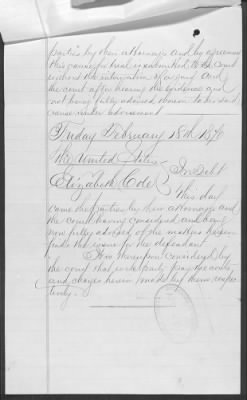 parties by their attorneys and by agreement
this cause for trial is submitted to the Court
without the intervention of a jury And
the court after hearing the evidence and
not being fully advised thereon takes said
cause under advisement
Friday February 18th 1870
The United States
Elizabeth Cole
In Debt
This day
came the parties by their attorneys and
the court having considered and being
now fully advised of the matters herein
finds the issue for the defendant
It is therefore considered by
the court that each party pay the costs
and charges herein made by them respec
tively.